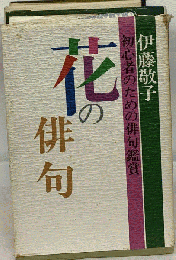 伊藤敬子
初心者のための俳句鑑賞
花の俳句